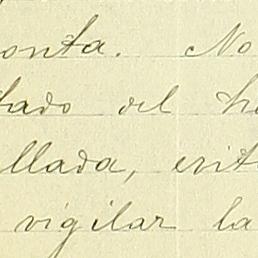 onta. No
tado del h
llada, evit
vigilar la